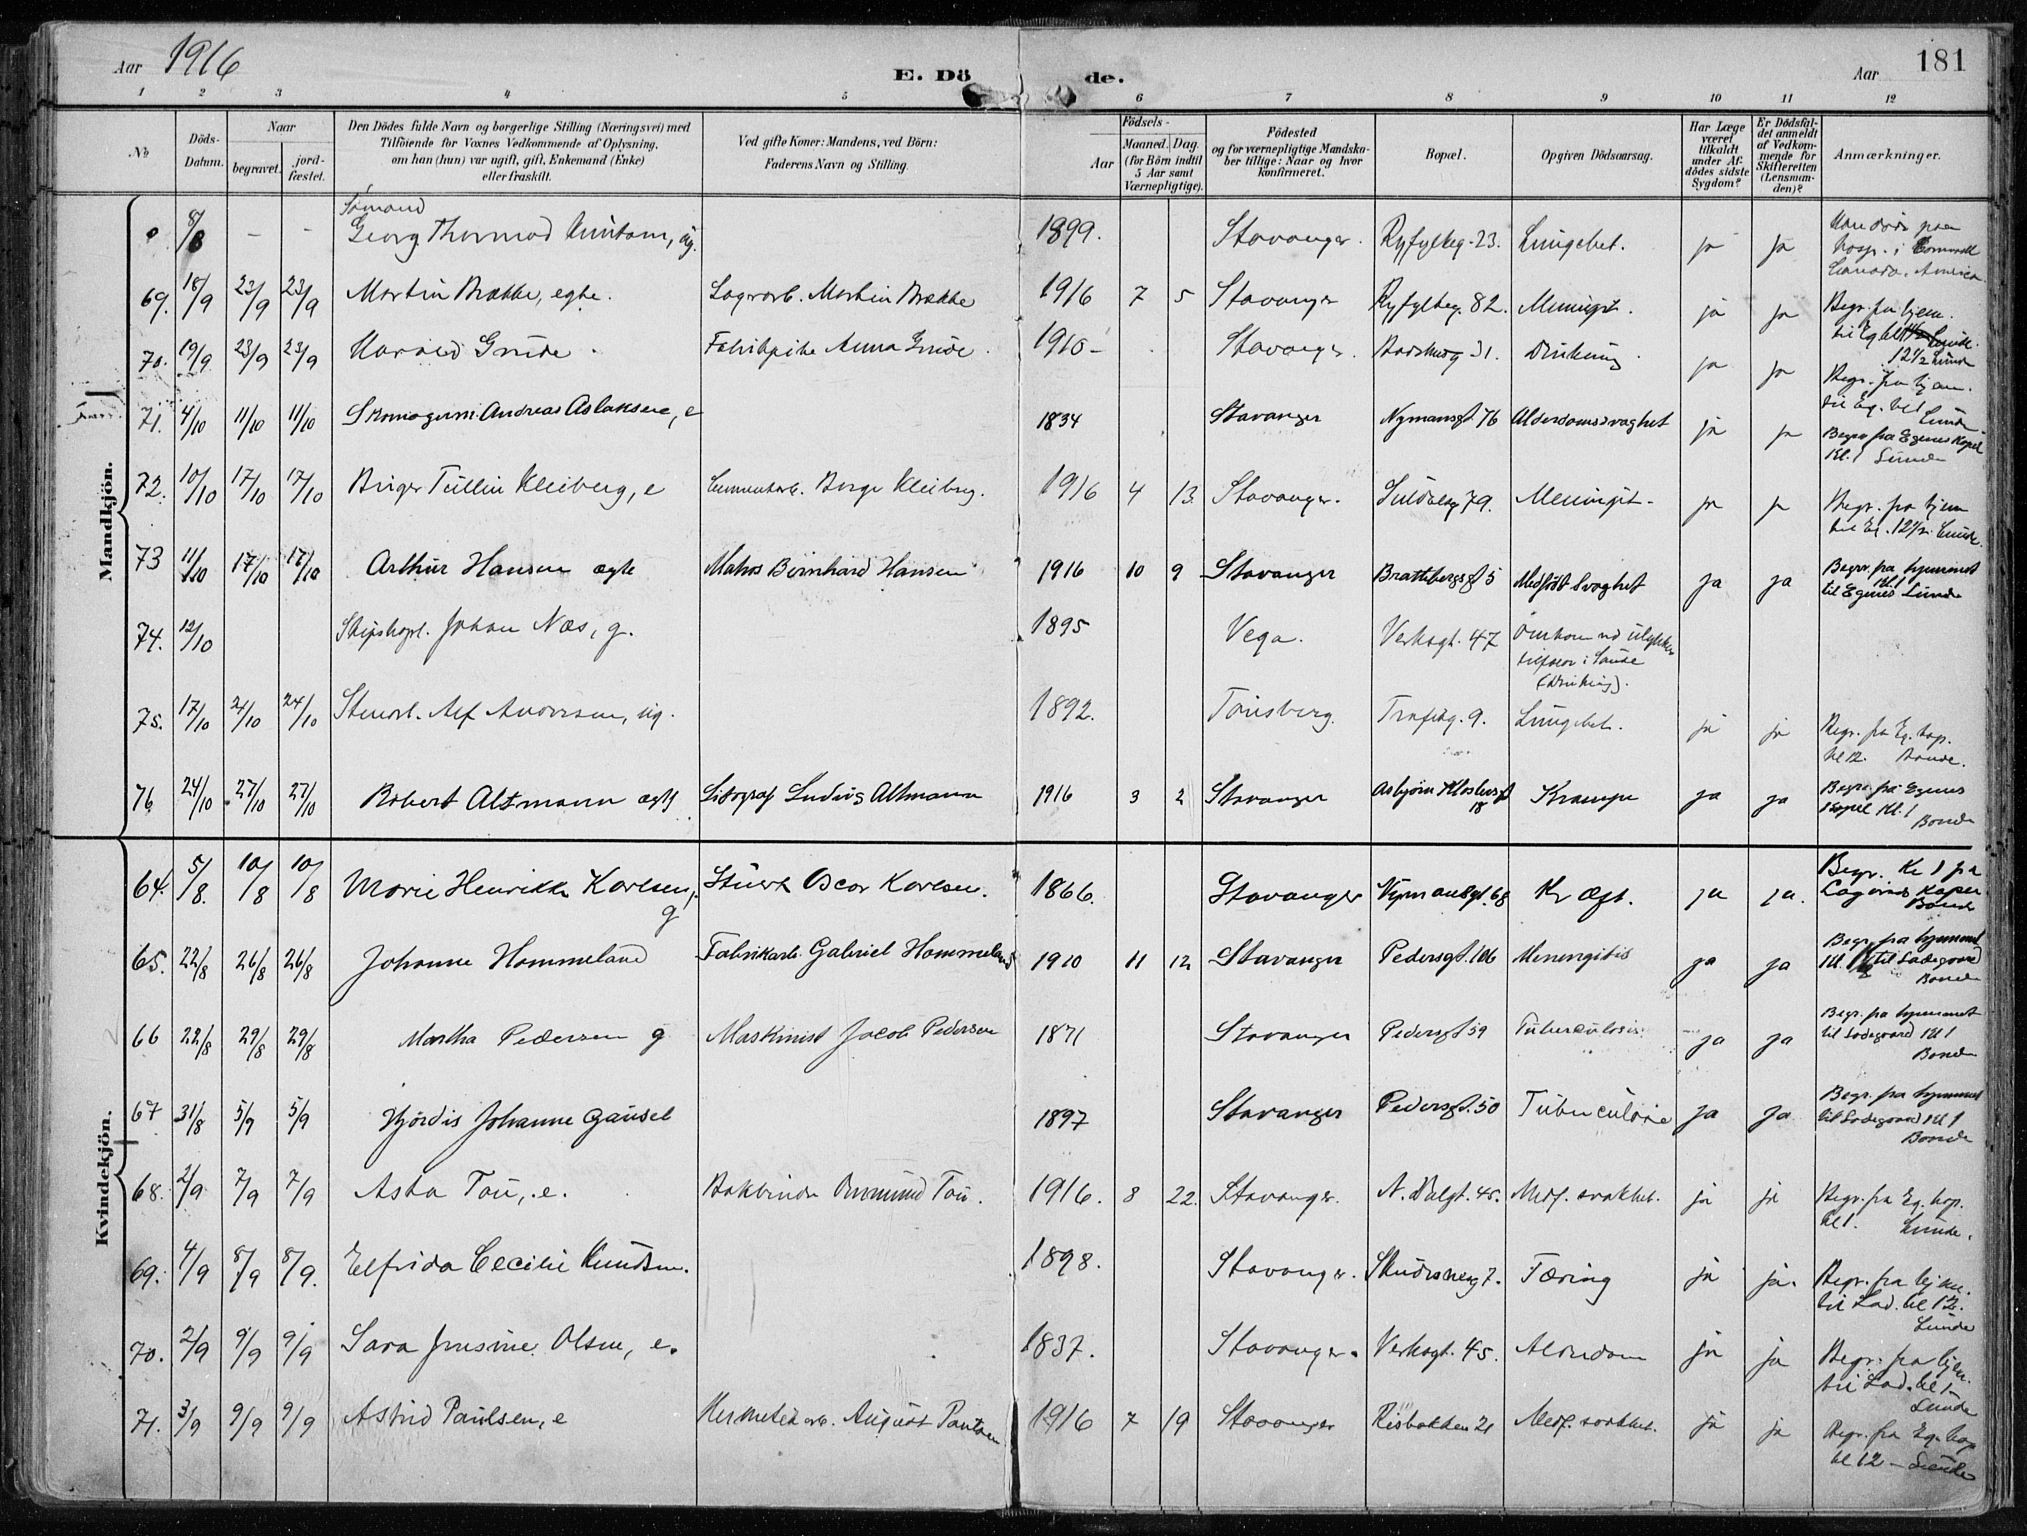 Aar 1916
E. Döde.
Aar 181
1 2 3 4 5 6 7 8 9 10 11 12
No
Döds-Datum.
Naar
begravet. jord-fæstet.
Den Dödes fulde Navn og borgerlige Stilling (Næringsvei) med
Tilföiende for Voxnes Vedkommende af Oplysning,
om han (hun) var ugift, gift, Enkemand (Enke)
eller fraskilt.
Ved gifte Koner: Mandens, ved Börn:
Faderens Navn og Stilling.
Födsels-
Aar Maaned. Dag.
(for Börn indtil
5 Aar samt
Værnepligtige).
Födested
og for værnepligtige Mandska-
ber tillige: Naar og hvor
konfirmeret.
Bopæl.
Opgiven Dödsaarsag.
Har Læge
været
tilkaldt
under Af-
dödes sidste
Sygdom?
Er Dödsfal-
det anmeldt
af Vedkom-
mende for
Skifteretten
(Lensman-
den)?
Anmærkninger.
Mandkjön.
Sömand
8/8 - - Georg Thormod, ug. 1899. Stavanger. Ryfylkeg. 23. Lungebet. ja ja
hosp. i
Canada. America
69. 18/9 23/9 23/9 Martin Brække, egte. Lagerarb. Martin Brække 1916 7 5 Stavanger Ryfylkeg. 82. Meningit. ja ja Begr. fra hjem.
70. 19/9 23/9 23/9 Harald Grude. Fabrikpike Anna Grude. 1910 - Stavanger. 31. Drukning. ja ja
12 1/2 Lunde
Begr. fra hjem.
til Eg. kl. 1
Lunde
71. 4/10 11/10 11/10 Skomagerm. Andreas Aslaksen, e 1834 Stavanger Nymansgt. 76 Alderdomssvaghet ja ja Begr. fra Egenes Kapel
Kl. 1 Lunde
72. 10/10 17/10 17/10 Birger Tullin Kleiberg, e Børge Kleiberg. 1916 4 13 Stavanger. Suldalsg 79. Meningit. ja ja Begr. fra hjem
til Eg. 12 1/2. Lunde.
73 11/10 17/10 17/10 Arthur Hansen ægte Matros Bernhard Hansen 1916 10 9 Stavanger Brattebergsgt 5 Medfødt Svaghet ja ja Begr. fra hjemmet
Kl. 1
til Egenes Lunde
74. 12/10 Skipskapt. Johan Næs, g. 1895 Vega. Verksgt. 47 Omkom ved ulykkes
tilfælde i
(Drukning).
75. 17/10 24/10 24/10 Stuert. Alf Andersen, ug. 1892. Tønsberg. 9. Lungebet. ja ja Begr. fra Eg. kap.
kl 12. Bonde.
76 24/10 27/10 27/10 Robert Altmann ægte Litograf Ludvig Altmann 1916 3 2 Stavanger Asbjørn Klostersgt
18 Krampe ja ja Begr. fra Egenes
Kapel Kl. 1
Bonde
Kvindekjön.
64. 5/8. 10/8 10/8 Marie Henrikke Karlsen,
g Stuert Oscar Karlsen. 1866. Stavanger Nymansgt. 68 Kræft. ja ja. Begr. Kl 1 fra
Lagårds Kapel
Bonde
65. 22/8 26/8 26/8 Johanne Hommeland Fabrikarb. Gabriel Hommeland 1910 11 12 Stavanger Pedersgt. 106 Meningitis ja ja Begr. fra hjemmet
Kl. 1 til Ladegaard
Bonde
66 22/8 29/8 29/8 Martha Pedersen g Maskinist Jacob Pedersen 1871 Stavanger Pedersgt 59 Tuberculosis ja ja Begr. fra hjemmet
til Ladegaard Kl 1
Bonde
67 31/8 5/9 5/9 Hjørdis Johanne Gausel 1897 Stavanger Pedersgt. 50 Tuberculose ja ja Begr. fra hjemmet
til Ladegaard Kl 1
Bonde
68. 2/9 7/9 7/9 Asta Tou, e. Bokbinder Tou. 1916. 8 22. Stavanger. N. Dalgt. 45. Medf. svakhet. ja ja Begr. fra Eg. kap.
kl 1. Lunde.
69. 4/9 8/9 8/9. Elfrida Cecilie Knudsen. 1898. Stavanger. 7. Tæring ja ja. Begr. fra hjem.
til Lad. kl 12.
Lunde
70. 2/9 9/9 9/9 Sara Olsen, e. 1837. Stavanger. Verksgt. 45. Alderdom ja ja Begr. fra hjem.
til Lad. kl 1 -
Lunde
71. 3/9 9/9 9/9 Astrid Paulsen, e Hermetikarb. August Paulsen 1916 7 19 Stavanger Risbakken 21 Medf. svakhet. ja ja Begr. fra Eg. kap
kl 12 - Lunde